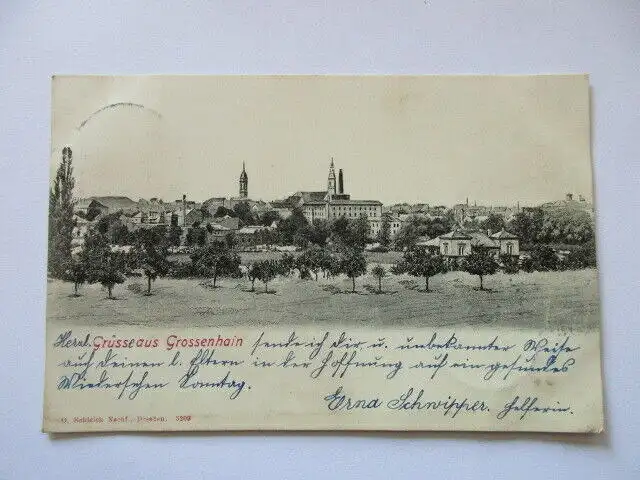 Herzl. Grüsse aus Grossenhain sende ich Dir u. unbekannter Weise
auch Deinen l. Eltern in der Hoffnung auf ein gesundes
Wiedersehen Sonntag.
Erna Schwipper. Helferin.
O. Schleich Nachf., Dresden. 5209